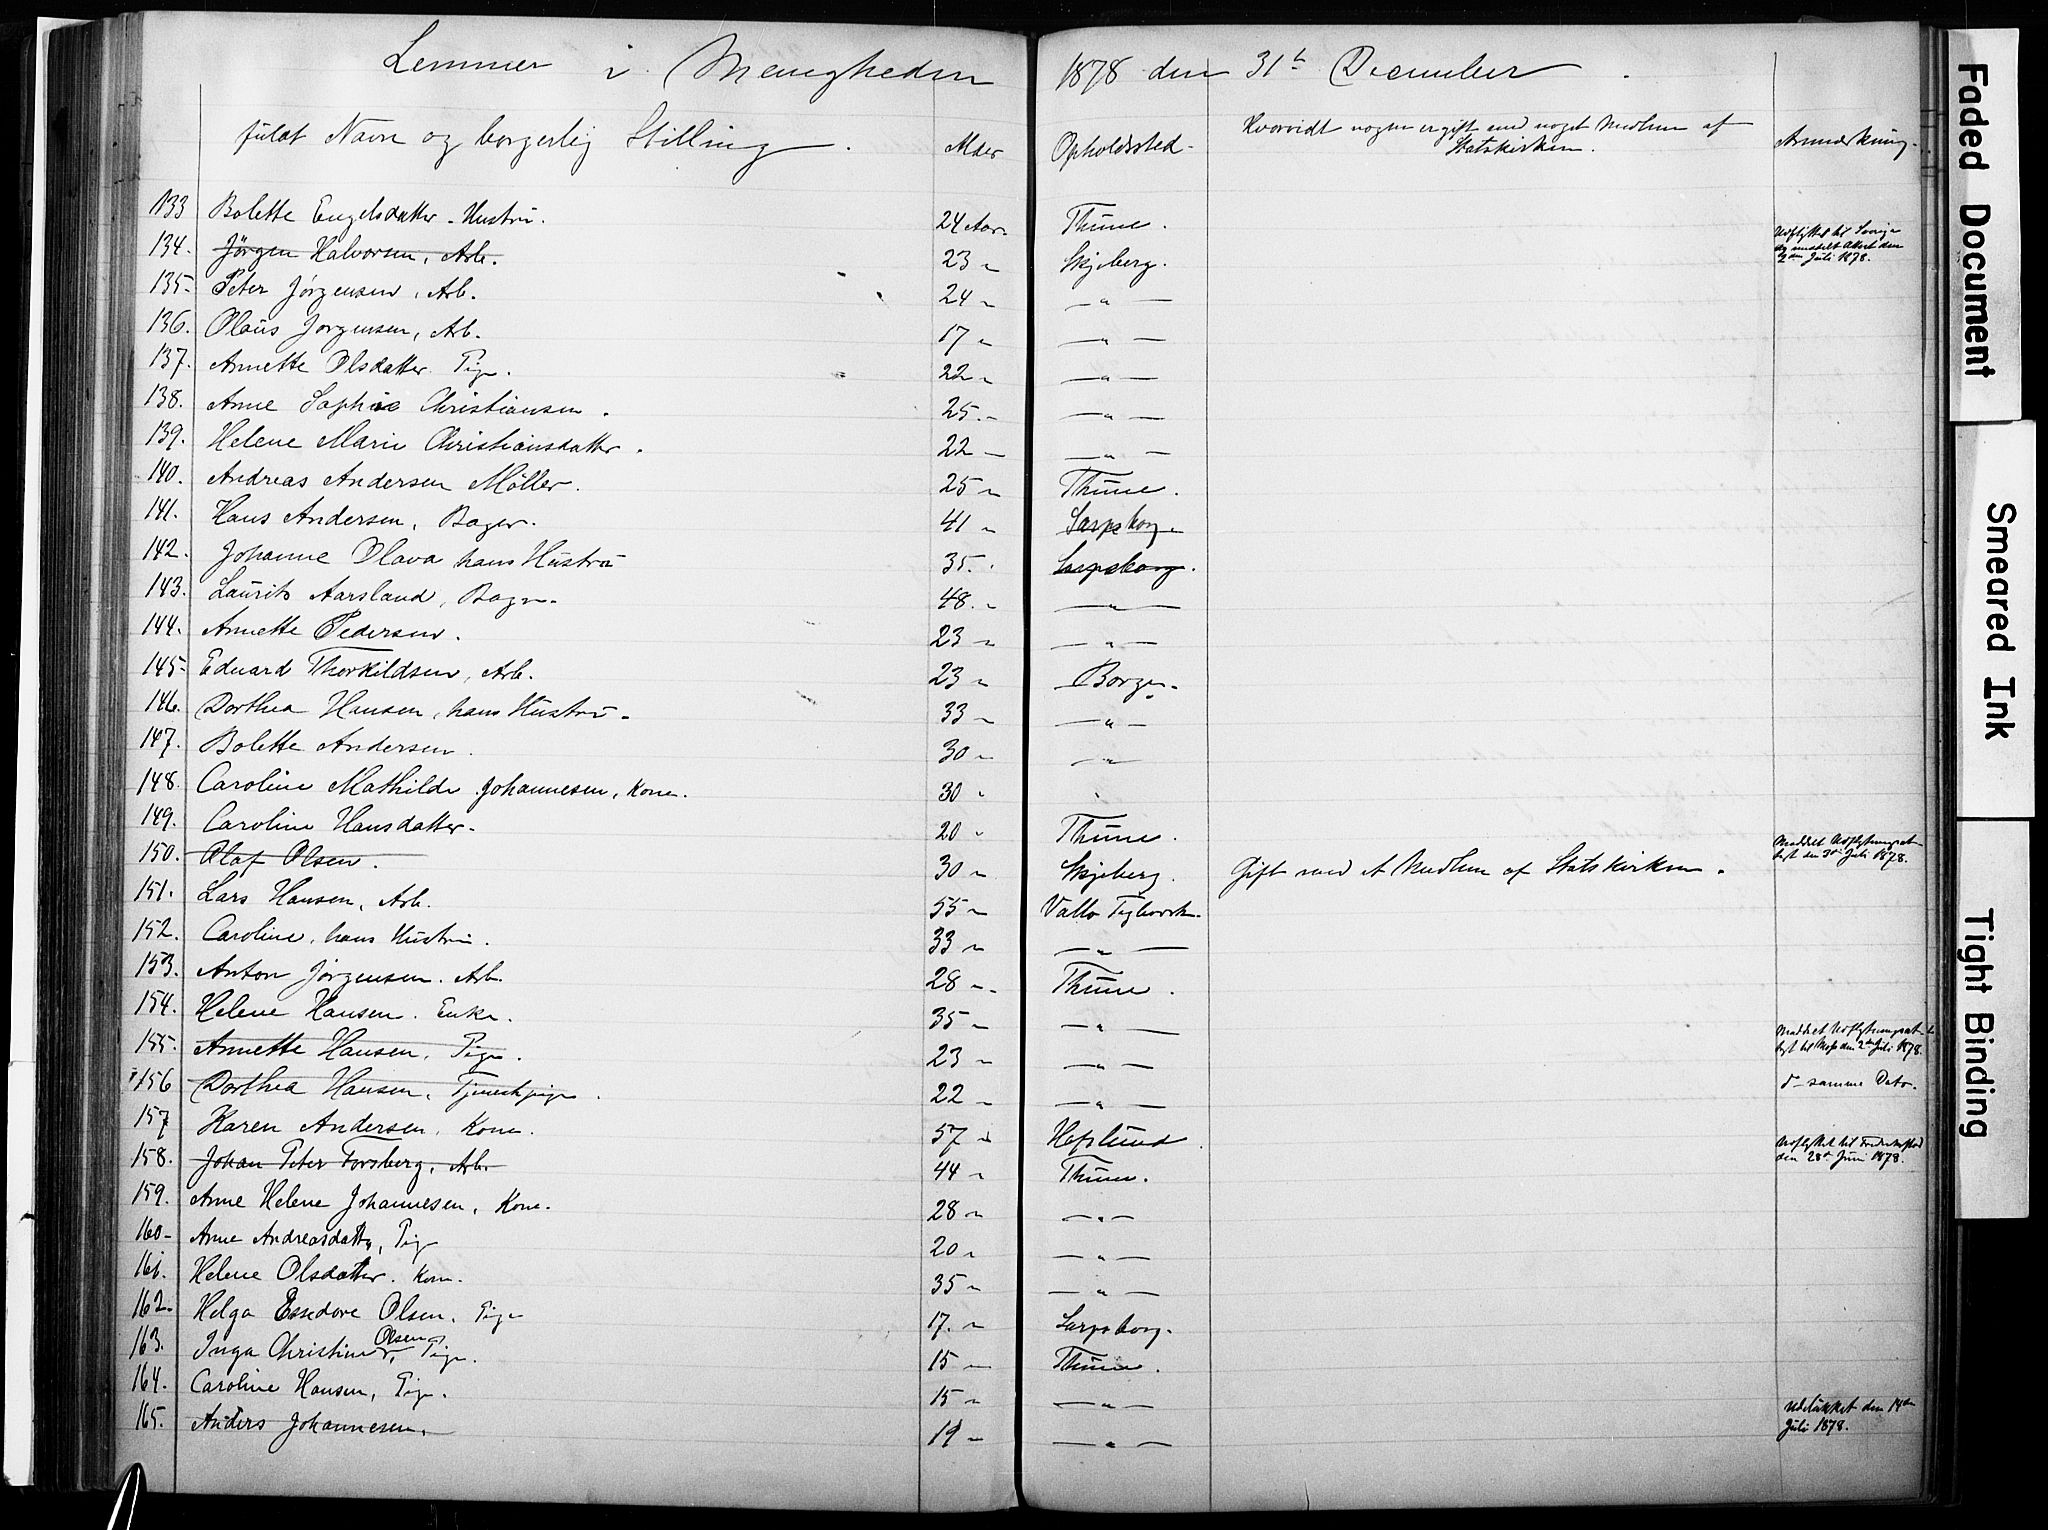 Lemmer i Menigheden 1878 den 31te December.
fuldt Navn og borgerlig Stilling. Alder Opholdssted. Hvorvidt nogen er gift med noget Medlem af Statskirken. Anmærkning.
133 Bolette Engelsdatter. Hustru. 24 Aar. Thune.
134. Jörgen Halvorsen, Arb. 23 " Skjeberg. Udflyttet til Sverige og meddelt Attest den 2den Juli 1878.
135. Peter Jörgensen, Arb. 24 " — " —
136. Olaus Jörgensen, Arb. 17 " — " —
137. Annette Olsdatter Pige. 22 " — " —
138. Anne Sophie Christiansen. 25. " — " —
139. Helene Marie Christiansdatter. 22 — — " —
140. Andreas Andersen Möller. 25 " Thune.
141. Hans Andersen, Bager. 41 " Sarpsborg.
142. Johanne Olava hans Hustru 35. " Sarpsborg.
143. Laurits Aarsland, Bager. 48. " — " —
144. Annette Pedersen. 23 " — " —
145. Eduard Thorkildsen, Arb. 23 " Borge.
146. Dorthea Hansen, hans Hustru. 33 " — " —
147. Bolette Andersen. 30 " — " —
148. Caroline Mathilde Johannesen, Kone. 30 " "
149. Caroline Hansdatter. 20 " Thune.
150. Olaf Olsen. 30 " Skjeberg. Gift med et Medlem af Statskirken. Meddelt Udflytningsattest den 3die Juli 1878.
151. Lars Hansen, Arb. 55 " Valle Teglværk.
152. Caroline, hans Hustru. 33 " — " —
153. Anton Jörgensen. Arb. 28 " Thune.
154. Helene Hansen. Enke. 35 " — " —
155. Annette Hansen, Pige. 23 " — " — Meddelt Udflytningsattest til Moss den 2den Juli 1878.
156 Dorthea Hansen, Tjenestepige. 22 " — " — d– samme Dato.
157 Karen Andersen, Kone. 57 " Hafslund.
158. Johan Peter Forsberg, Arb. 44 " Thune. Udflyttet til Frederikstad den 28de Juni 1878.
159. Anne Helene Johannesen, Kone. 28 " — " —
160. Anne Andreasdatter, Pige 20 " — " —
161. Helene Olsdatter. Kone. 35 " — " —
162. Helga Essedore Olsen, Pige 17. " Sarpsborg.
163. Inga Christine Olsen, Pige. 15 " Thune.
164. Caroline Hansen, Pige. 15 " — " —
165. Anders Johannesen. 19 " — " — Udelukket den 14de Juli 1878.
Faded Document
Smeared Ink
Tight Binding